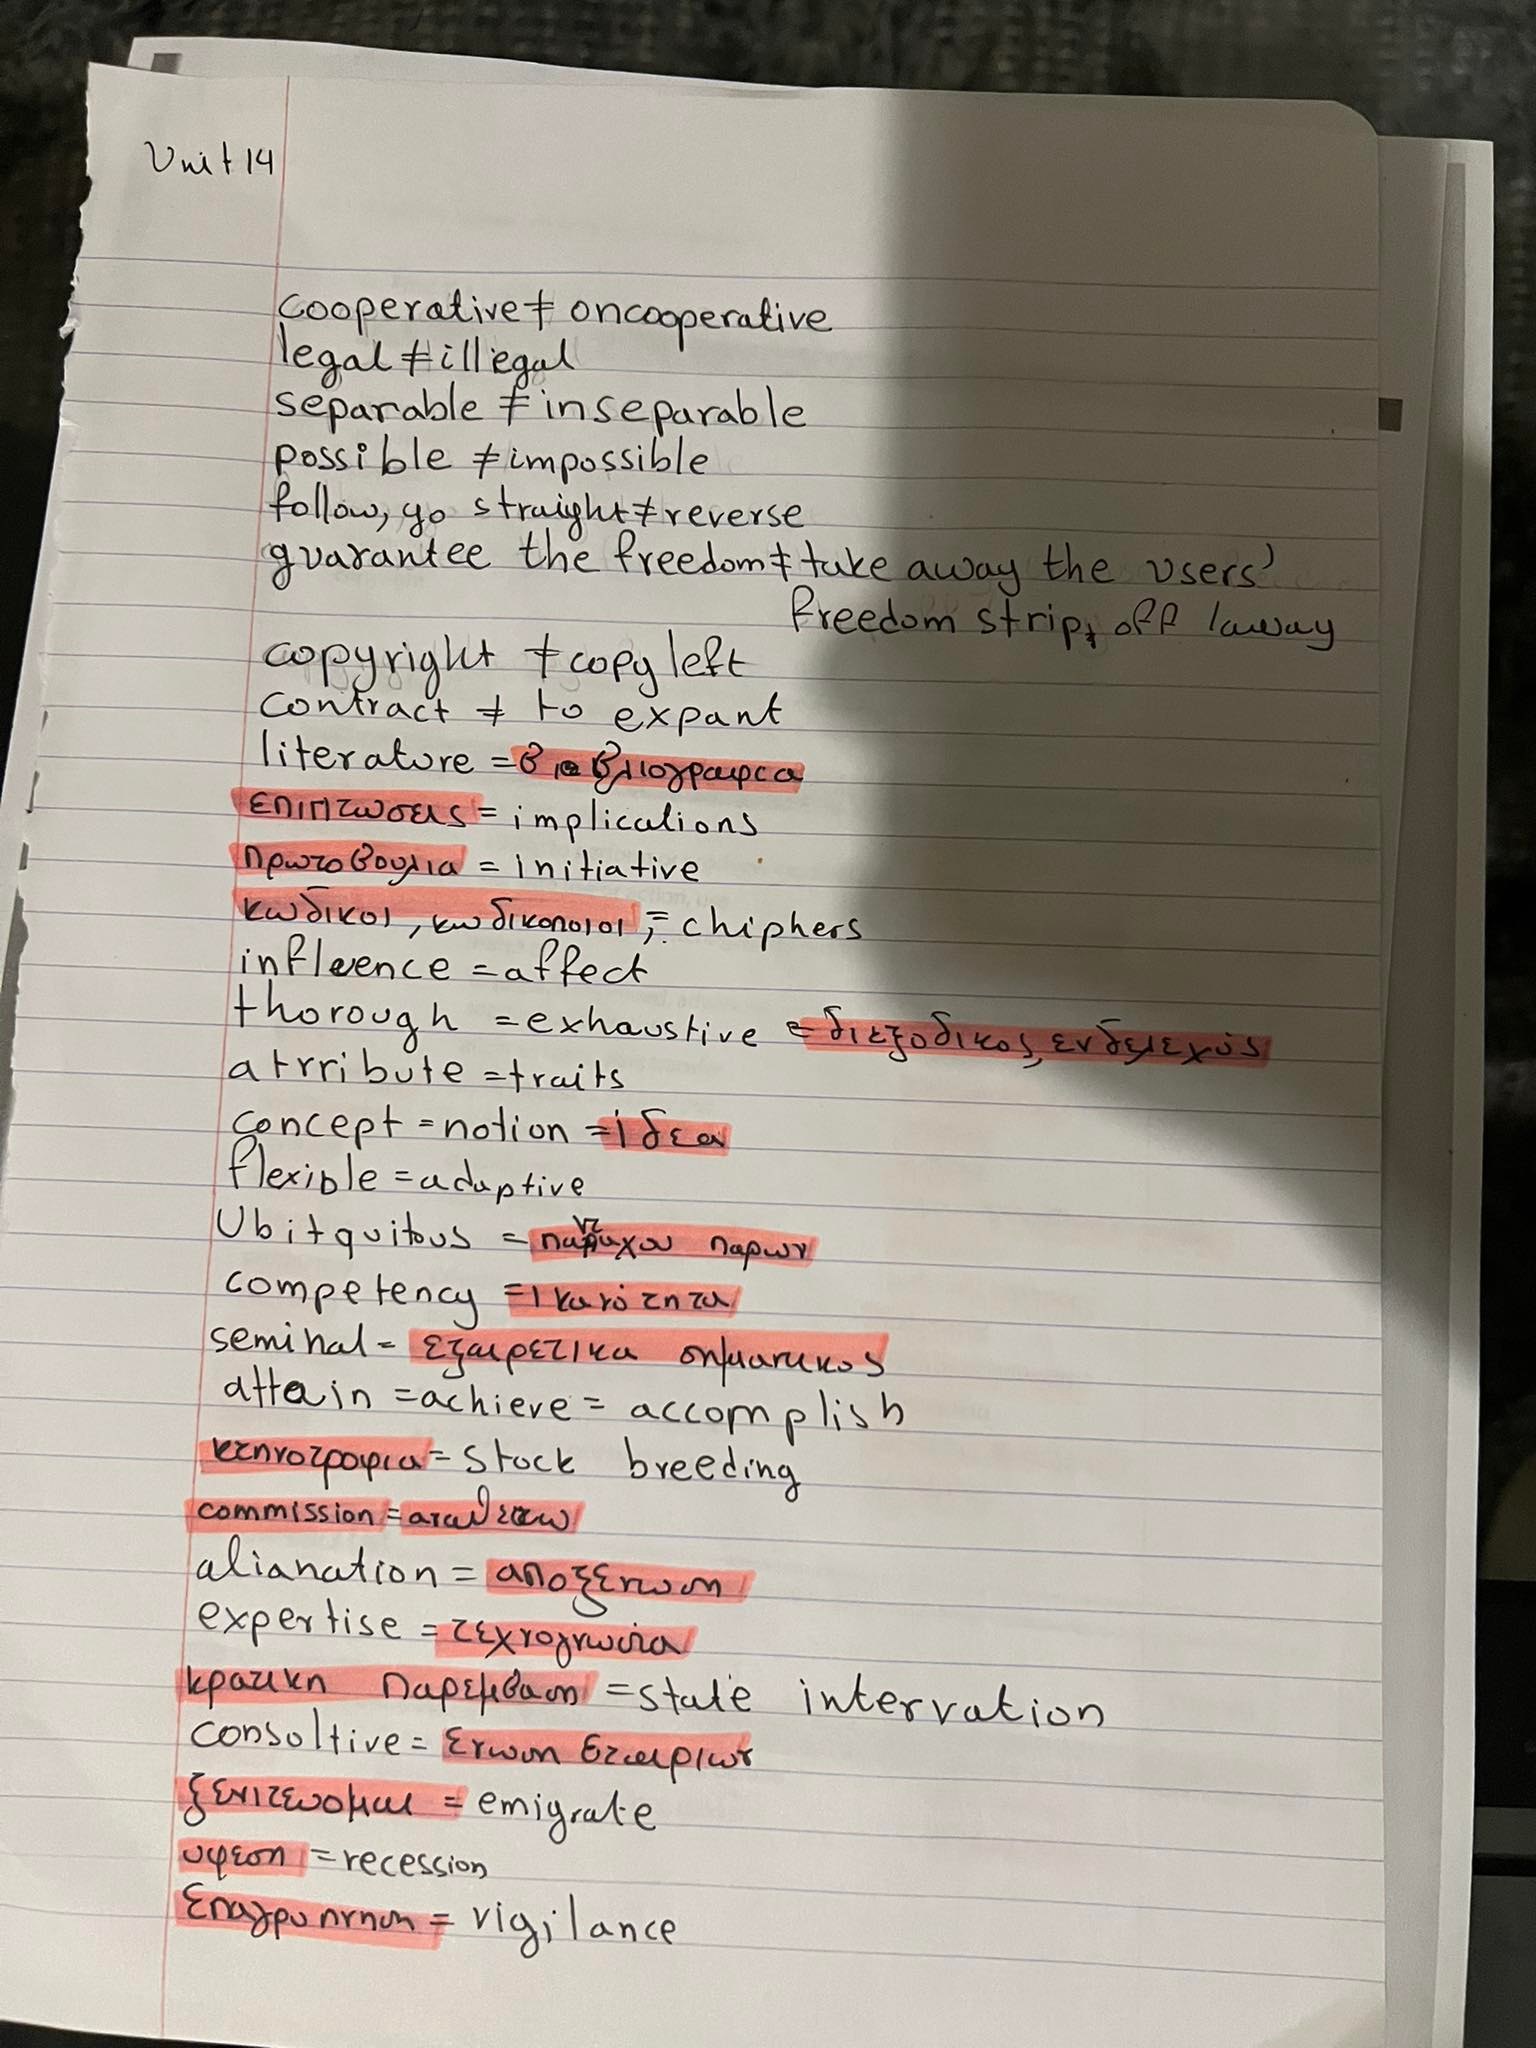 Unit 14
cooperative ≠ oncooperative
legal ≠ illegal
separable ≠ inseparable
possible ≠ impossible
follow, go straight ≠ reverse
guarantee the freedom ≠ take away the users'
freedom strip, off /away
copyright ≠ copyleft
contract ≠ to expant
literature = βιβλιογραφια
επιπτωσεις = implications
πρωτοβουλια = initiative
κωδικοι, κωδικοποιοι = chiphers
influence = affect
thorough = exhaustive = διεξοδικος, ενδελεχύς
atrribute = traits
concept = notion = ιδεα
flexible = adaptive
Ubitquitous = πανταχου παρων
competency = ικανότητα
seminal = εξαιρετικα σημαντικος
attain = achieve = accomplish
κτηνοτροφια = stock breeding
commission = αναθετω
alianation = αποξενωση
expertise = τεχνογνωσία
κρατικη παρεμβαση = state intervation
consoltive = ενωση εταιριων
ξενιτευομαι = emigrate
υφεση = recession
επαγρυπνηση = vigilance